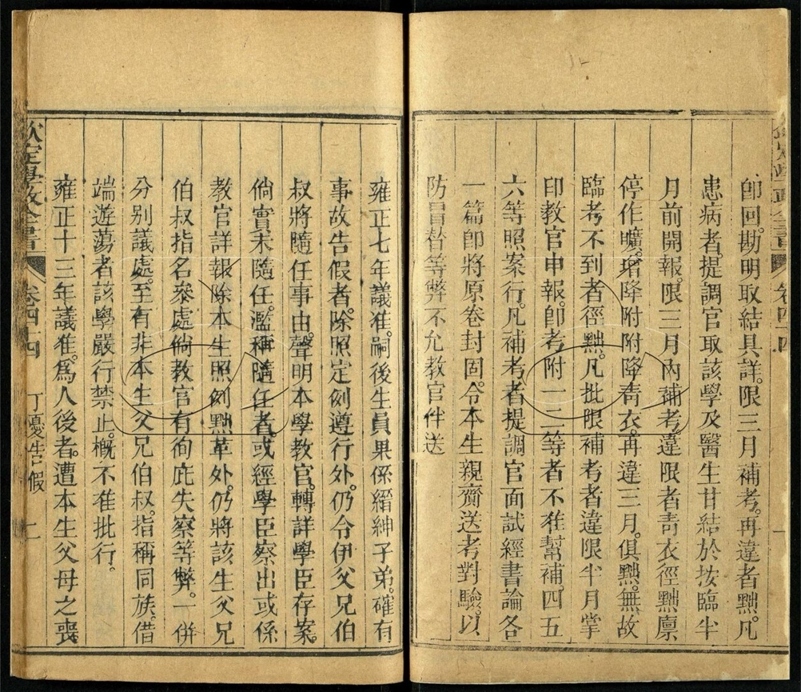 即回勘明取結具詳。限三月補考。再違者黜。凡
患病者。提調官取該學及醫生甘結於按臨半
月前開報。限三月內補考。違限者青衣徑黜廩
停作曠。增降附附降青衣。再違三月。俱黜。無故
臨考不到者徑黜。凡批限補考者違限半月掌
印教官申報。即考附一二等者不准幫補。四五
六等照案行。凡補考者提調官面試經書論各
一篇即將原卷封固。令本生親齎送考對驗。以
防冒替等弊不允教官伴送
雍正七年議准。嗣後生員果係縉紳子弟。確有
事故告假者。除照定例遵行外。仍令伊父兄伯
叔將隨任事由。聲明本學教官。轉詳學臣存案。
倘實未隨任。濫稱隨任者或經學臣察出或係
教官詳報除本生照例黜革外。仍將該生父兄
伯叔指名叅處。倘教官有徇庇失察等弊。一併
分别議處。至有非本生父兄伯叔。指稱同族。借
端遊蕩者該學嚴行禁止。概不准批行。
雍正十三年議准。爲人後者。遭本生父母之喪
欽定學政全書 卷四十四 丁憂告假 二